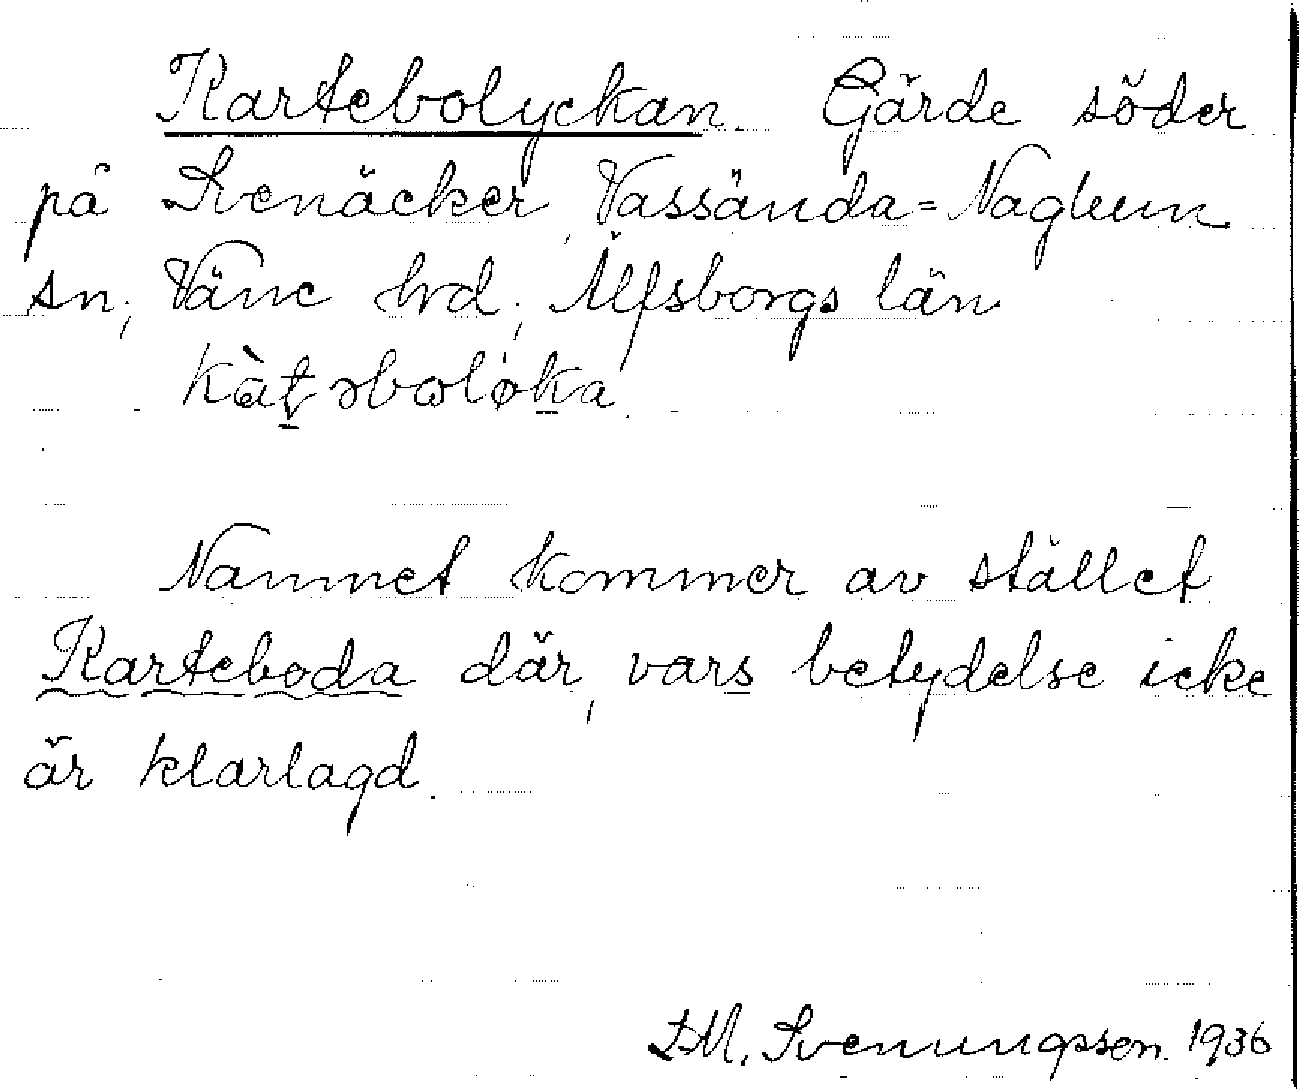 Kartebolyckan. Gärde söder
på Svenäcker, Vassända=Naglum
sn, Väne hrd, Älfsborgs län
kàt̠əbωlok̠a
Namnet kommer av stället
Karteboda där, vars betydelse icke
är klarlagd.
D.M. Svenungsson. 1936